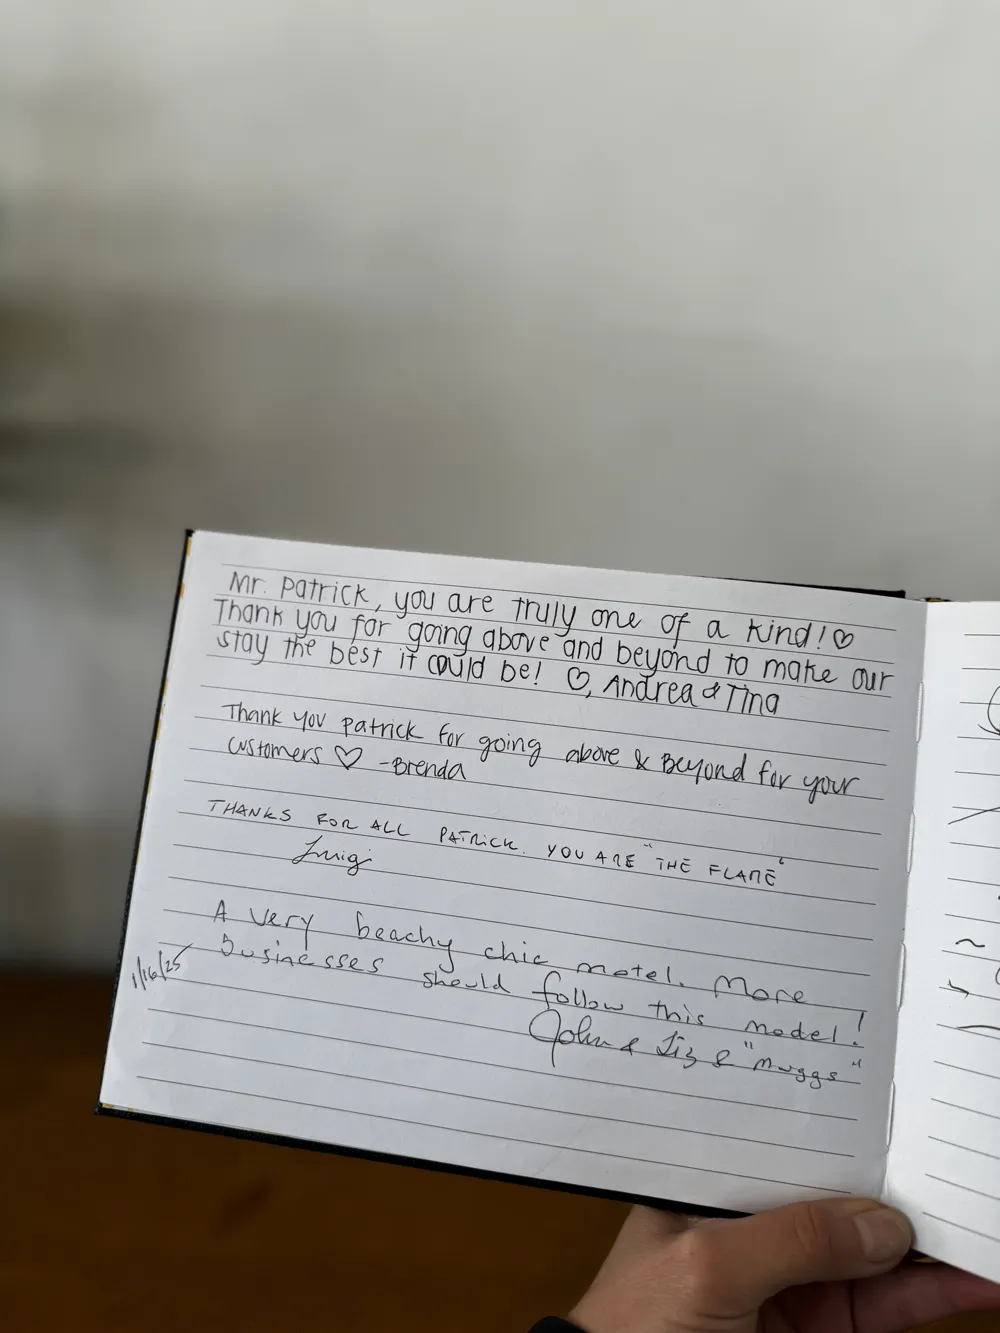 Mr. Patrick, you are truly one of a kind! ♡
Thank you for going above and beyond to make our
stay the best it could be! ♡, Andrea & Tina
Thank you Patrick for going above & Beyond for your
customers ♡ -Brenda
THANKS FOR ALL PATRICK. YOU ARE "THE FLAME"
Luigi
A very beachy chic motel. More
1/16/25 Businesses should follow this model!
John & Liz & "Muggs"